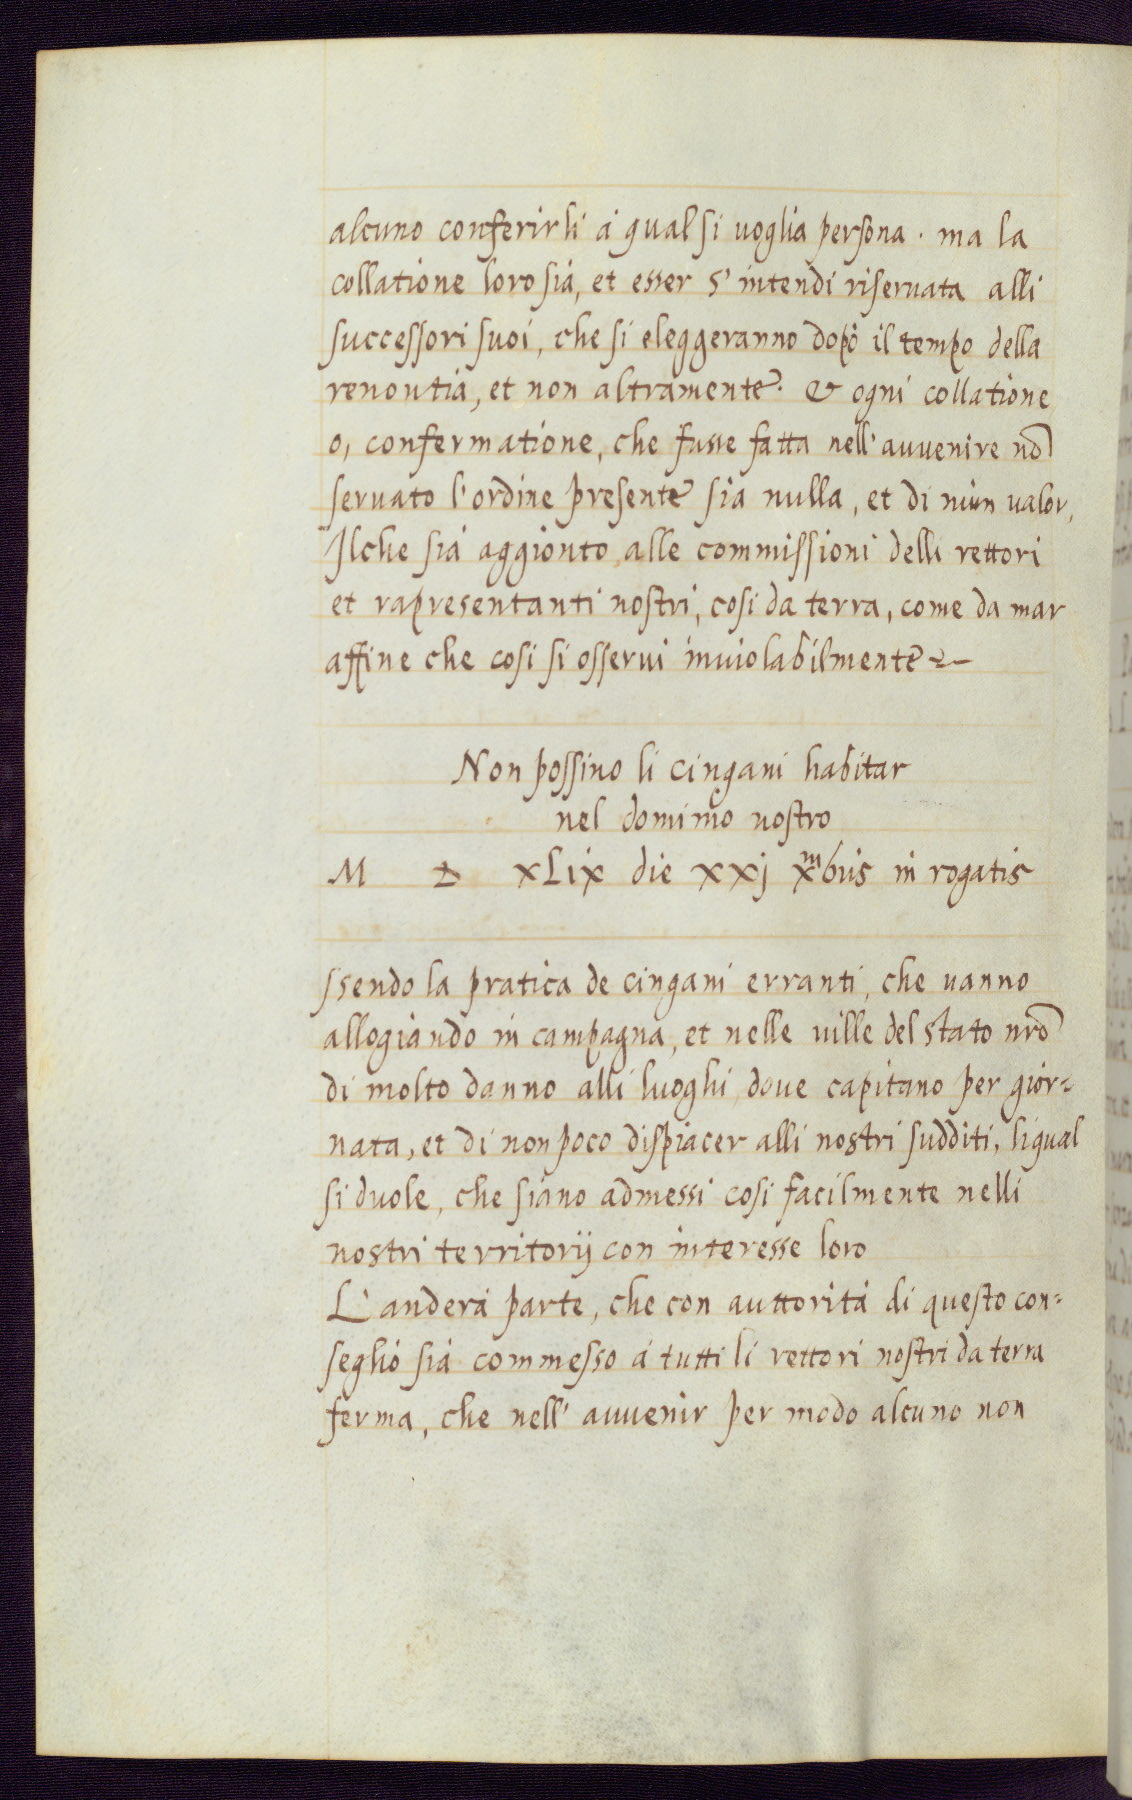 alcuno conferirli à qual si uoglia persona. ma la
collatione loro sia, et esser s'intendi riseruata alli
successori suoi, che si eleggeranno dopò il tempo della
renontia, et non altramente. & ogni collatione
o, confermatione, che fusse fatta nell'auuenire nō
seruato l'ordine presente sia nulla, et di niun valor,
Ilche sia aggionto alle commissioni delli rettori
et rapresentanti nostri, cosi da terra, come da mar
affine che cosi si osserui inuiolabilmente
Non possino li cingani habitar
nel dominio nostro
M D XLIX die XXj Xmbris in rogatis
ssendo la pratica de cingani erranti, che uanno
allogiando in campagna, et nelle uille del stato nrō
di molto danno alli luoghi, doue capitano per gior-
nata, et di non poco dispiacer alli nostri sudditi, liqual
si duole, che siano admessi cosi facilmente nelli
nostri territorij con interesse loro
L'anderà parte, che con auttorità di questo con-
seglio sia commesso à tutti li rettori nostri da terra
ferma, che nell'auuenir per modo alcuno non